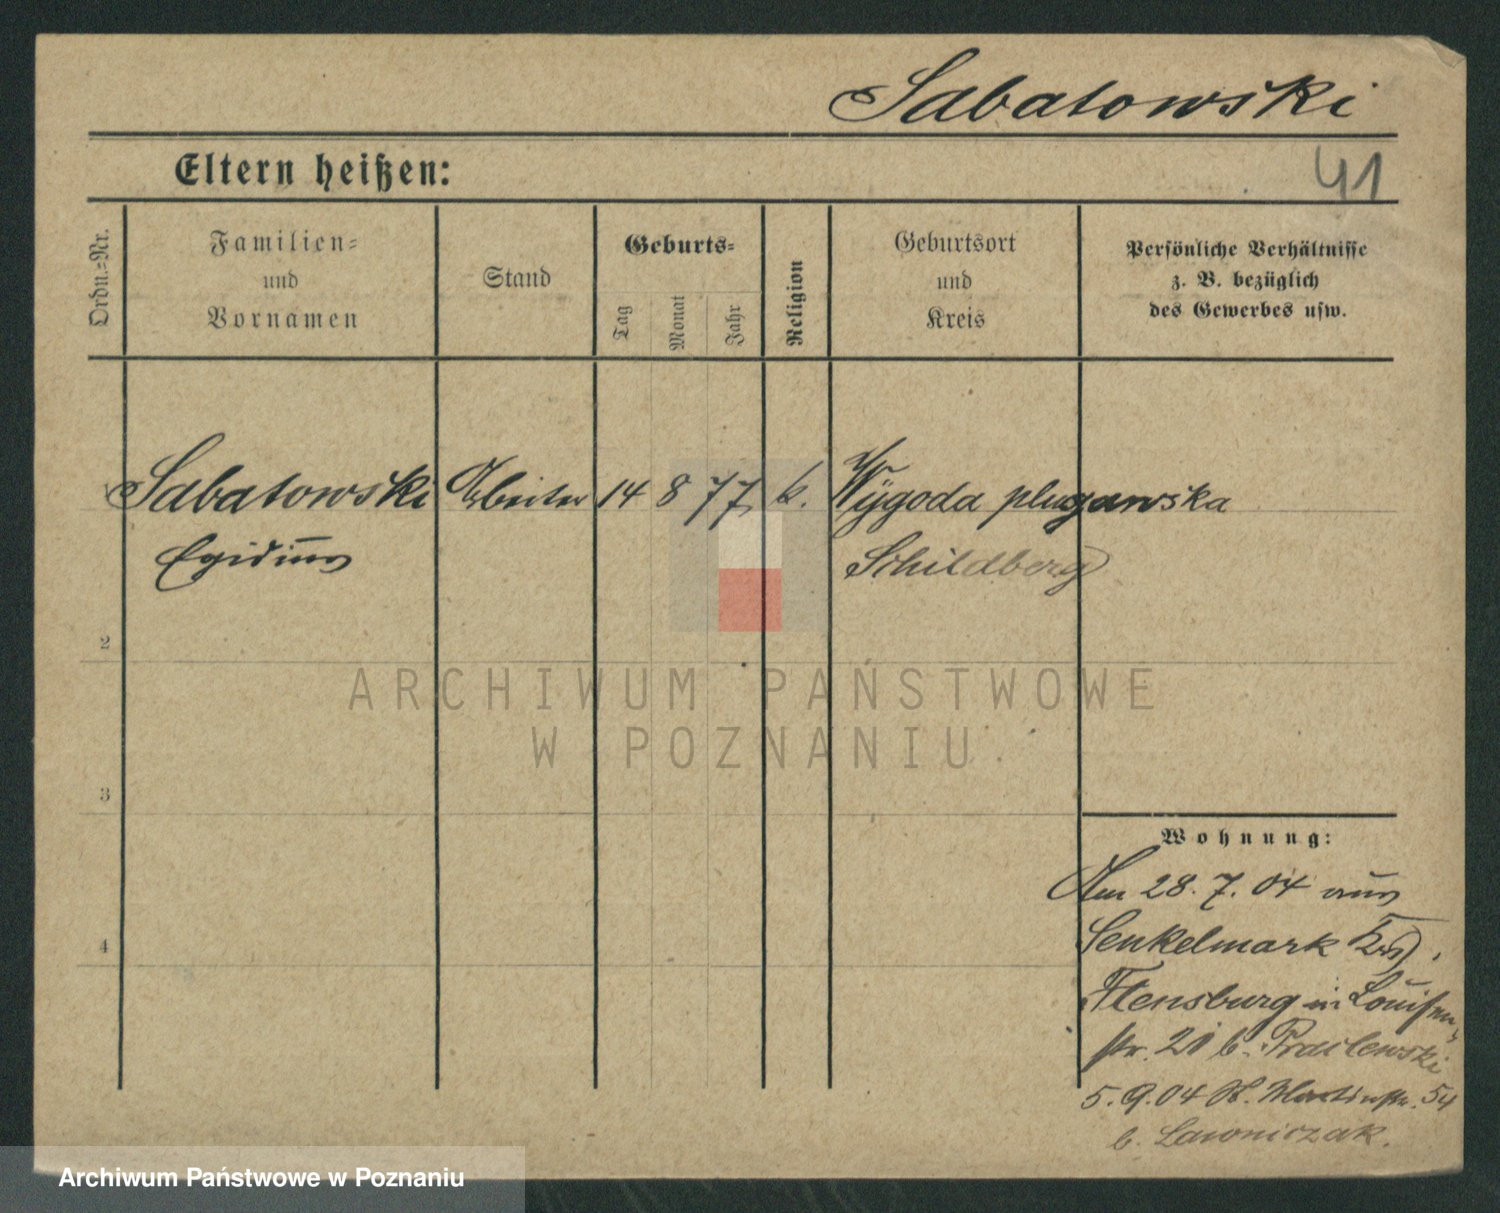 Sabatowski
41
Eltern heißen:
Ordn.-Nr.
Familien-
und
Vornamen
Stand
Geburts-
Tag
Monat
Jahr
Religion
Geburtsort
und
Kreis
Persönliche Verhältnisse
z. B. bezüglich
des Gewerbes usw.
Sabatowski Arbeiter 14 8 77 k. Wygoda plugawska
Egidius Schildberg
2
3
4
Wohnung:
Am 28.7.04 aus
Senkelmark Krs.
Flensburg in Louisen
str. 21 b.
5.9.04 St. Martinstr. 54
b. Lawniczak.
ARCHIWUM PAŃSTWOWE
W POZNANIU
Archiwum Państwowe w Poznaniu